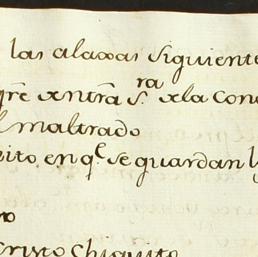 las alaxas siguiente
qɾē xntrā Sra xla Conc
l maltrado
sito, en qe se guardan l
ro
Cristo Chiquito